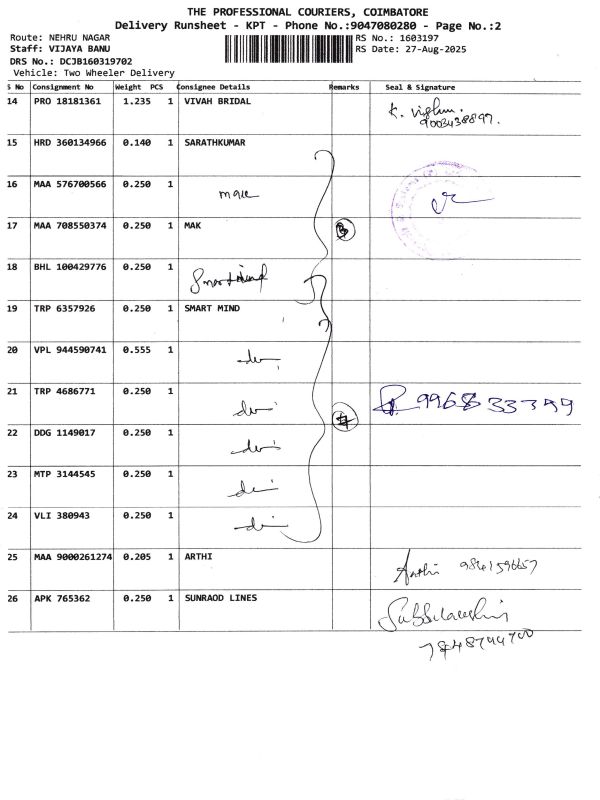 THE PROFESSIONAL COURIERS, COIMBATORE
Delivery Runsheet - KPT - Phone No.:9047080280 - Page No.:2
Route: NEHRU NAGAR RS No.: 1603197
Staff: VIJAYA BANU RS Date: 27-Aug-2025
DRS No.: DCJB160319702
Vehicle: Two Wheeler Delivery
S No Consignment No Weight PCS Consignee Details Remarks Seal & Signature
14 PRO 18181361 1.235 1 VIVAH BRIDAL
15 HRD 360134966 0.140 1 SARATHKUMAR
16 MAA 576700566 0.250 1
17 MAA 708550374 0.250 1 MAK
18 BHL 100429776 0.250 1 Smart Mind
19 TRP 6357926 0.250 1 SMART MIND
20 VPL 944590741 0.555 1
21 TRP 4686771 0.250 1 9968 33399
22 DDG 1149017 0.250 1
23 MTP 3144545 0.250 1
24 VLI 380943 0.250 1
25 MAA 9000261274 0.205 1 ARTHI Arthi 9841596657
26 APK 765362 0.250 1 SUNRAOD LINES